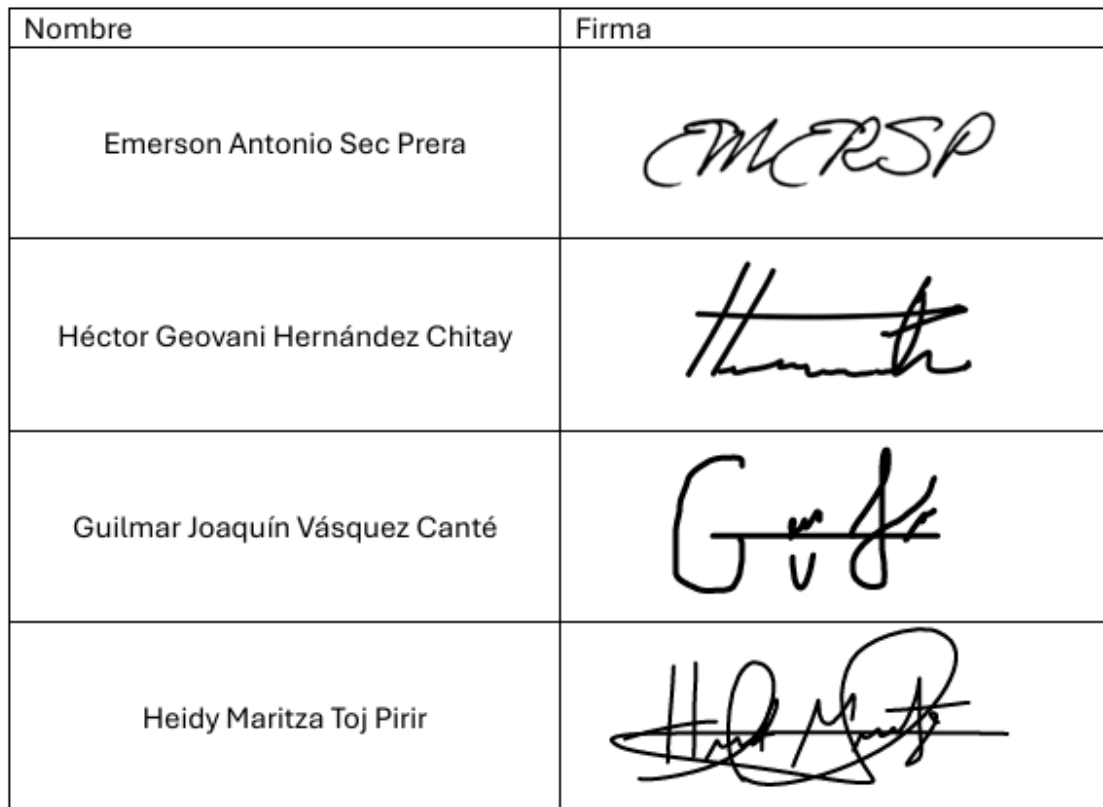 Nombre
Firma
Emerson Antonio Sec Prera
EMERSP
Héctor Geovani Hernández Chitay
Guilmar Joaquín Vásquez Canté
Heidy Maritza Toj Pirir